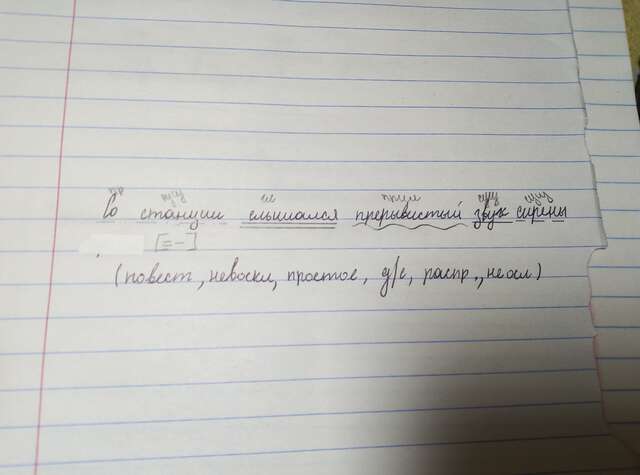 Со станции слышался прерывистый звук сирены
. [= -]
(повест, невоскл, простое, д/с, распр., неосл)